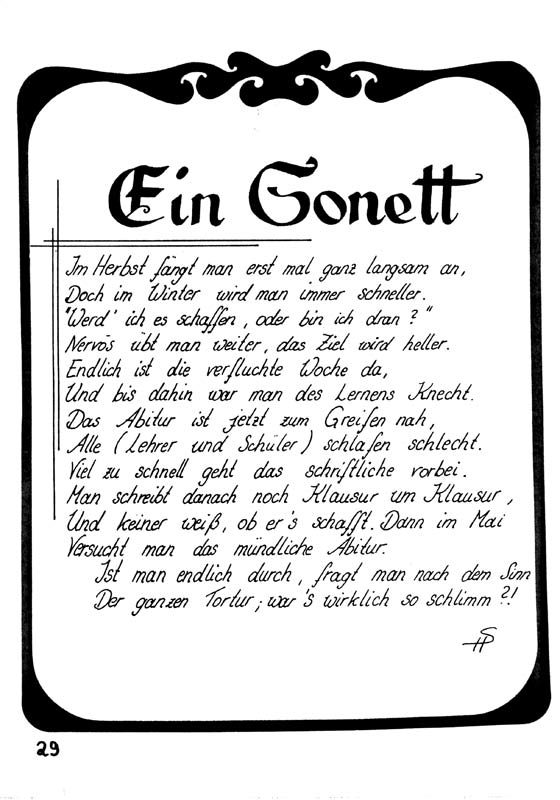 Ein Sonett
Im Herbst fängt man erst mal ganz langsam an,
Doch im Winter wird man immer schneller.
"Werd' ich es schaffen, oder bin ich dran?"
Nervös übt man weiter, das Ziel wird heller.
Endlich ist die verfluchte Woche da,
Und bis dahin war man des Lernens Knecht.
Das Abitur ist jetzt zum Greifen nah,
Alle (Lehrer und Schüler) schlafen schlecht.
Viel zu schnell geht das schriftliche vorbei.
Man schreibt danach noch Klausur um Klausur,
Und keiner weiß, ob er's schafft. Dann im Mai
Versucht man das mündliche Abitur.
Ist man endlich durch, fragt man nach dem Sinn
Der ganzen Tortur; war's wirklich so schlimm?!
HS
29